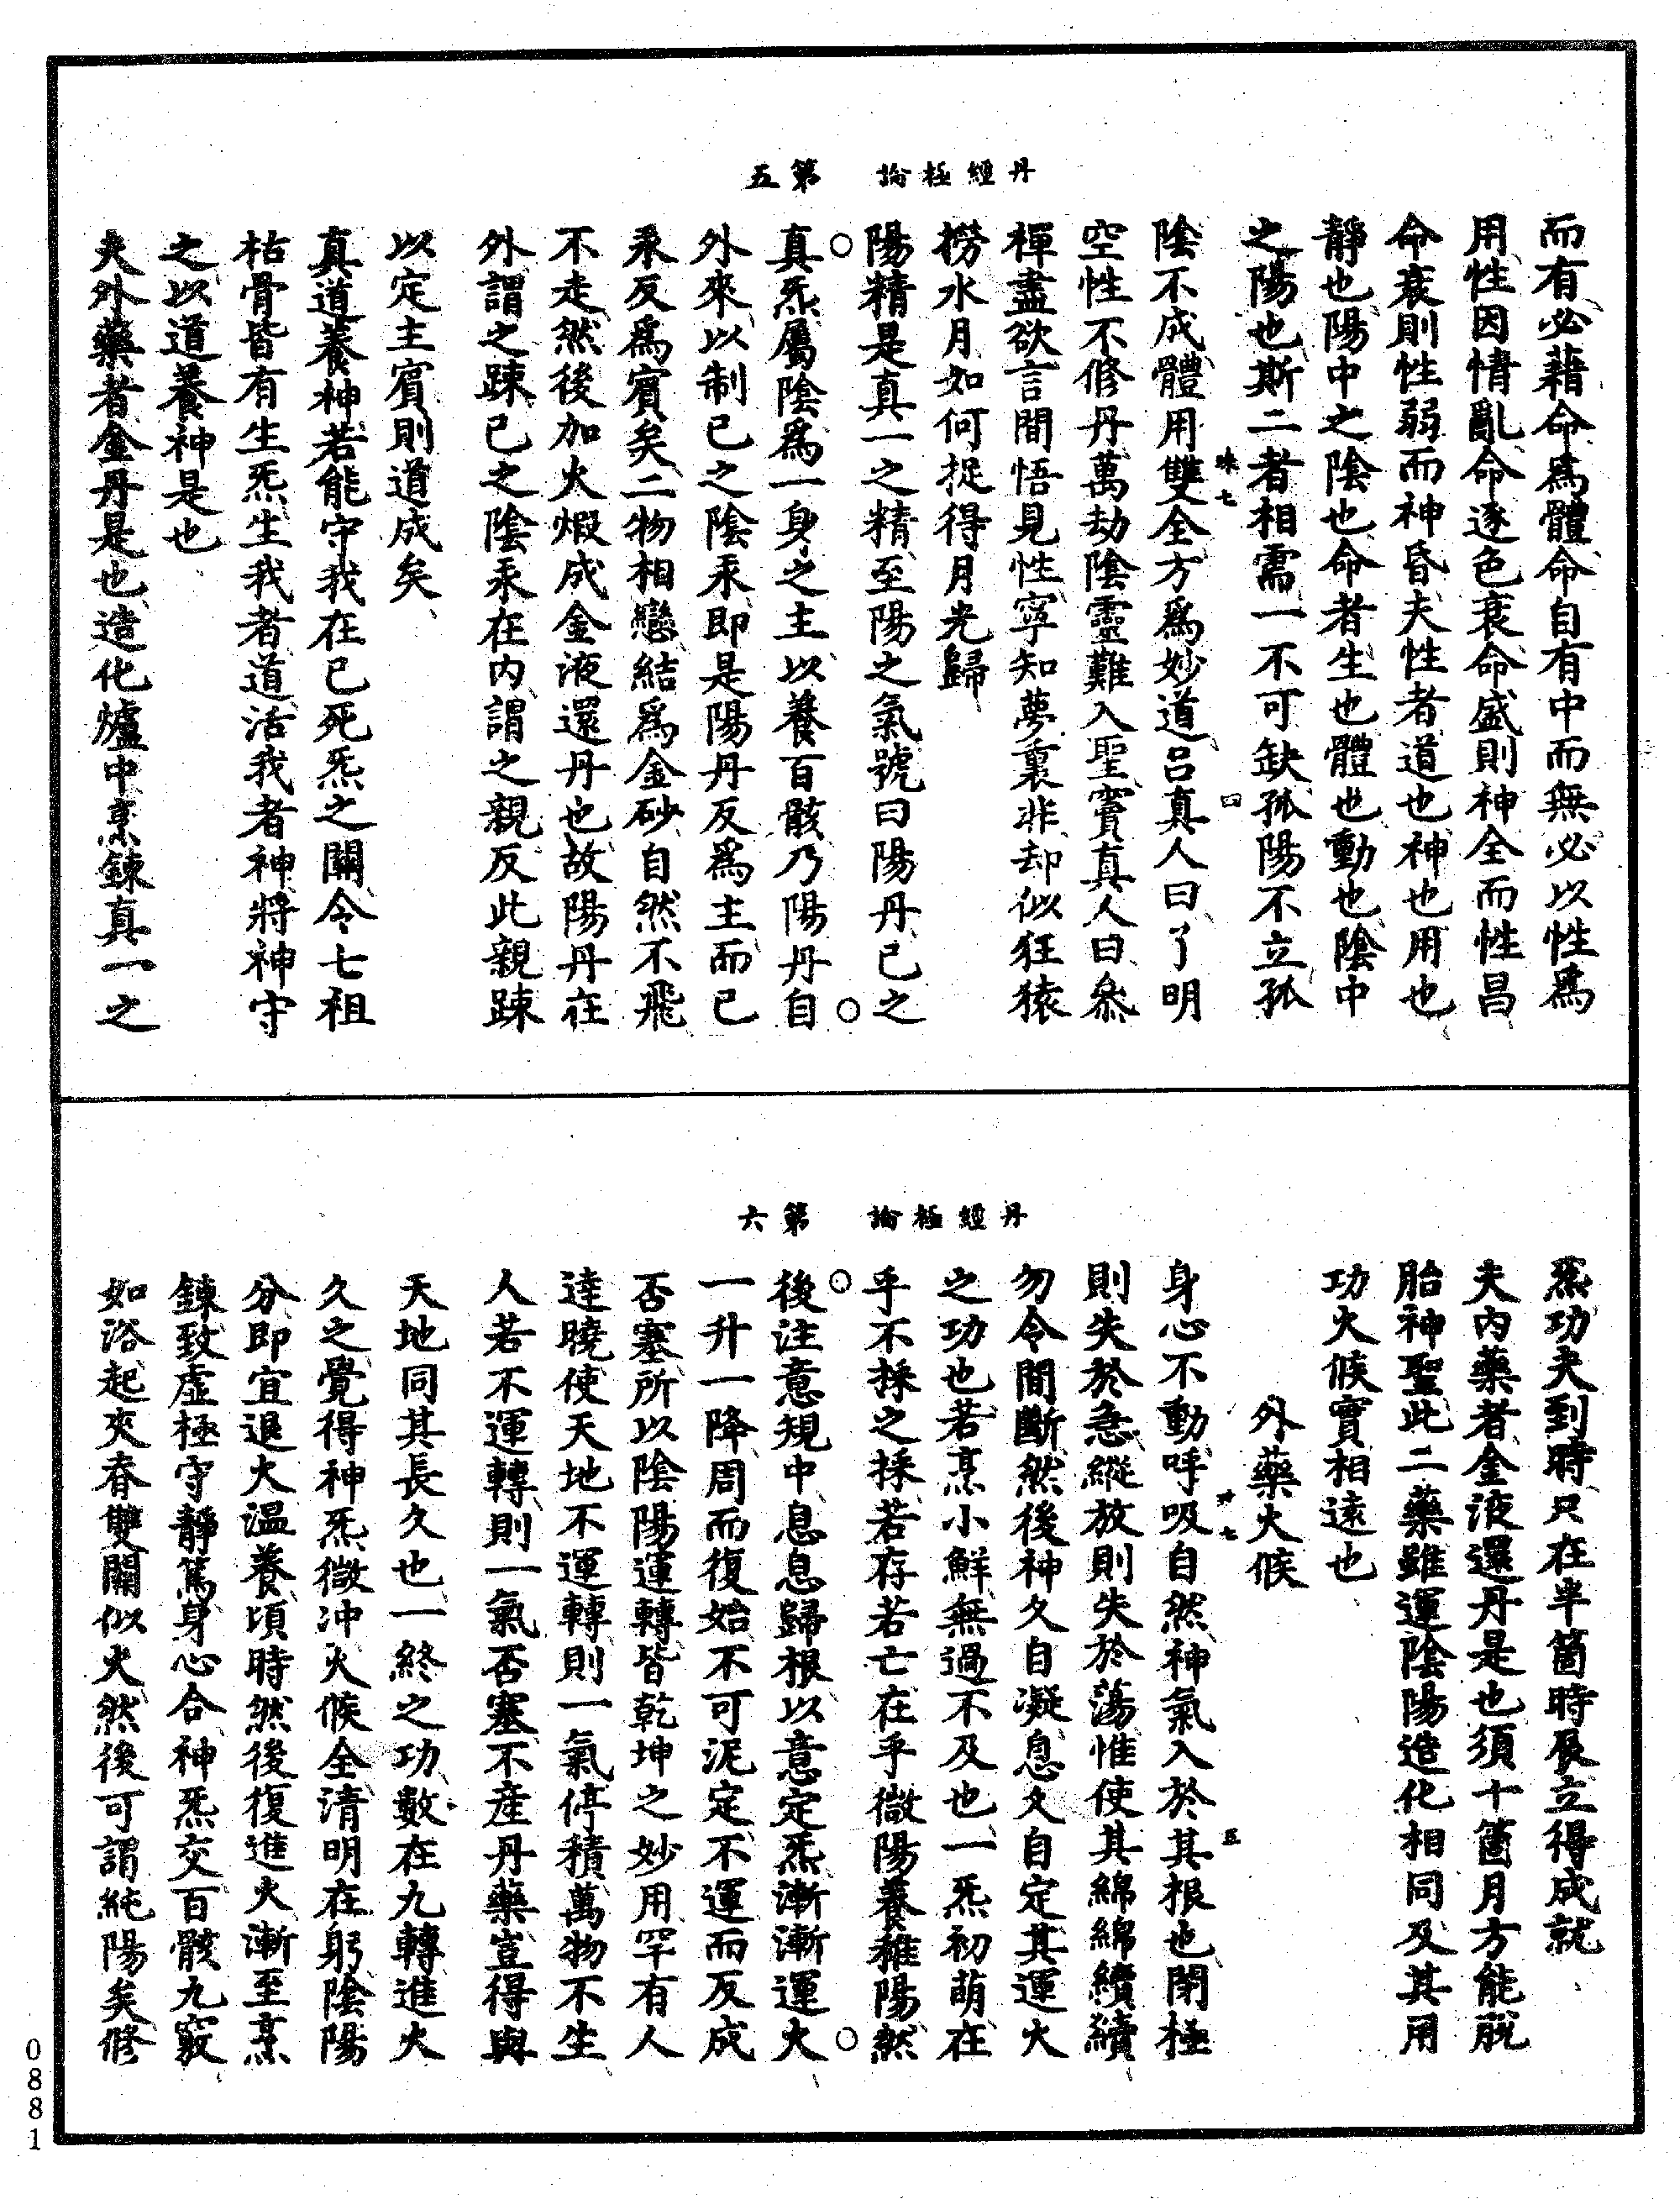 丹經極論　第五
而有必藉命爲體命自有中而無必以性爲
用性因情亂命逐色衰命盛則神全而性昌
命衰則性弱而神昏夫性者道也神也用也
靜也陽中之陰也命者生也體也動也陰中
之陽也斯二者相需一不可缺孤陽不立孤
陰不成體用雙全方爲妙道呂真人曰了明
空性不修丹萬劫陰靈難入聖竇真人曰叅
禪盡欲言間悟見性寧知夢裏非却似狂猿
撈水月如何捉得月光歸
陽精是真一之精至陽之氣號曰陽丹己之
真炁屬陰爲一身之主以養百骸乃陽丹自
外來以制己之陰汞即是陽丹反爲主而己
汞反爲賓矣二物相戀結爲金砂自然不飛
不走然後加火煆成金液還丹也故陽丹在
外謂之踈己之陰汞在内謂之親反此親踈
以定主賓則道成矣
真道養神若能守我在己死炁之關令七祖
枯骨皆有生炁生我者道活我者神將神守
之以道養神是也
夫外藥者金丹是也造化爐中烹鍊真一之
丹經極論　第六
炁功夫到時只在半箇時辰立得成就
夫内藥者金液還丹是也須十箇月方能脫
胎神聖此二藥雖運陰陽造化相同及其用
功火候實相遠也
外藥火候
身心不動呼吸自然神氣入於其根也閉極
則失於急縱放則失於蕩惟使其綿綿續續
勿令間斷然後神久自凝息久自定其運火
之功也若烹小鮮無過不及也一炁初萌在
乎不採之採若存若亡在乎微陽養稚陽然
後注意規中息息歸根以意定炁漸漸運火
一升一降周而復始不可泥定不運而反成
否塞所以陰陽運轉皆乾坤之妙用罕有人
達曉使天地不運轉則一氣停積萬物不生
人若不運轉則一氣否塞不産丹藥豈得與
天地同其長久也一終之功數在九轉進火
久之覺得神炁微冲火候全清明在躬陰陽
分即宜退火温養頃時然後復進火漸至烹
鍊致虛極守靜篤身心合神炁交百骸九竅
如浴起夾脊雙關似火然後可謂純陽矣修
0881